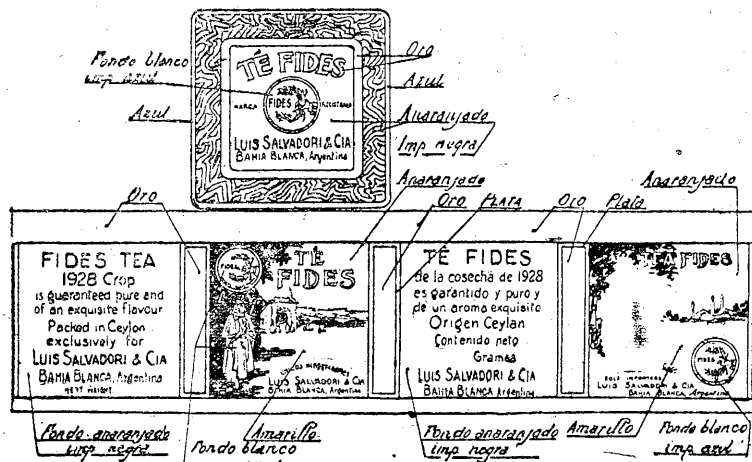 Fondo blanco
imp azul
Azul
Oro
Azul
Anaranjado
Imp negra
TÉ FIDES
MARCA
FIDES
REGISTRADA
LUIS SALVADORI & CIA
BAHIA BLANCA, Argentina
Oro
Anaranjado
Oro
PLATA
Oro
Plata
Anaranjado
FIDES TEA
1928 Crop
is guaranteed pure and
of an exquisite flavour
Packed in Ceylon
exclusively for
LUIS SALVADORI & CIA
BAHIA BLANCA, Argentina
NETT WEIGHT
FIDES
TÉ
FIDES
UNICOS IMPORTADORES
LUIS SALVADORI & CIA
BAHIA BLANCA, Argentina
TÉ FIDES
de la cosecha de 1928
es garantido y puro y
de un aroma exquisito
Origen Ceylan
Contenido neto
Gramos
LUIS SALVADORI & CIA
BAHIA BLANCA Argentina
TEA FIDES
FIDES
SOLE IMPORTERS
LUIS SALVADORI & CIA
BAHIA BLANCA, Argentina
Fondo anaranjado
imp negra
Fondo blanco
Amarillo
Fondo anaranjado
imp negra
Amarillo
Fondo blanco
imp azul